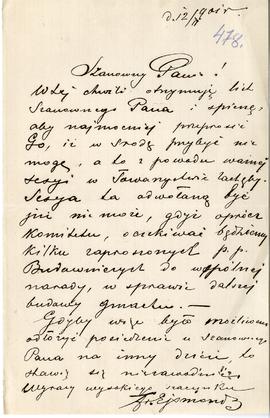 d. 12/II 901 r.
478.
Szanowny Panie!
W tej chwili otrzymuję list
Szanownego Pana i spieszę,
aby najmocniej przeprosić
Go, iż w środę przybyć nie
mogę, a to z powodu ważnej
sesyi w Towarzystwie Zachęty.
Sesya ta odwołaną być
już nie może, gdyż oprócz
Komitetu, oczekiwać będziemy
kilku zaproszonych p.p.
Budowniczych do wspólnej
narady, w sprawie dalszej
budowy gmachu. —
Gdyby więc było możliwem
odłożyć posiedzenie u Szanownego
Pana na inny dzień, to
stawię się niezawodnie.
Wyrazy wysokiego szacunku
Fr. Ejsmond